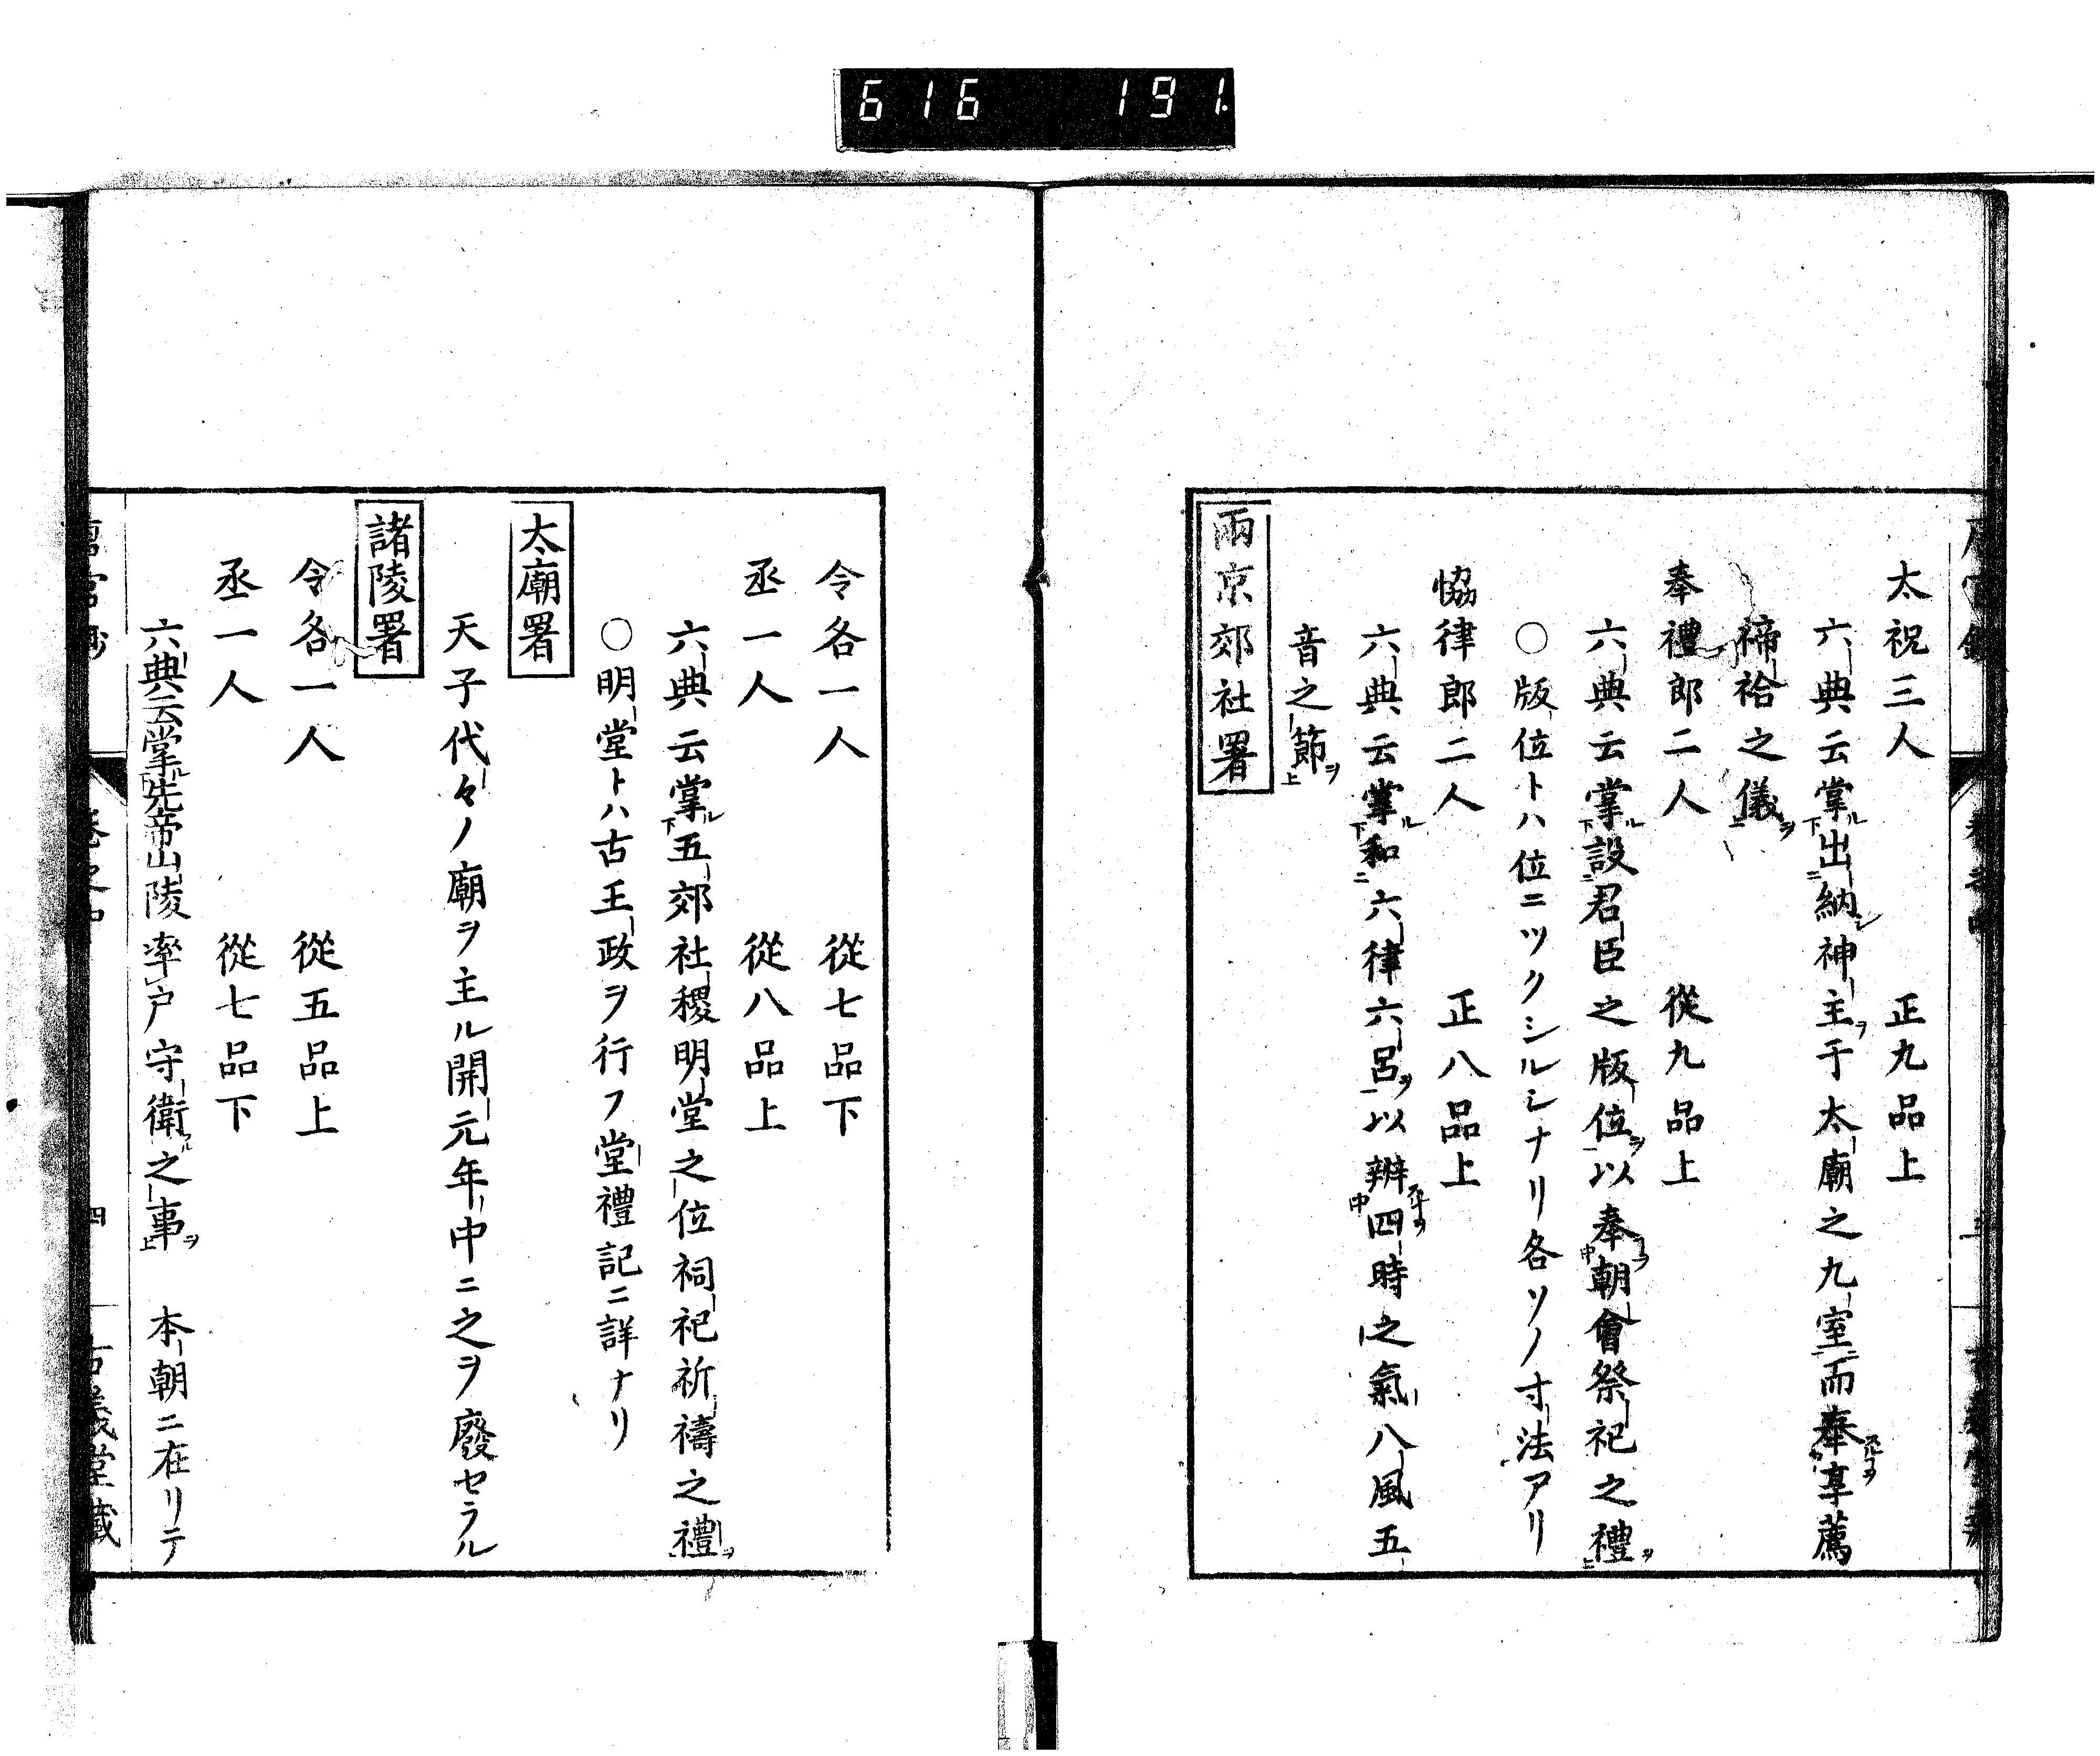 616 191
太祝三人 正九品上
六典云掌ル下出ニ納シ神主ヲ于太廟之九室ニ一而奉中享薦
禘祫之儀ヲ上
奉禮郎二人 從九品上
六典云掌ル下設ニ君臣之版位ヲ一以奉中朝會祭祀之禮ヲ上
○版位トハ位ニツクシルシナリ各ソノ寸法アリ
恊律郎二人 正八品上
六典云掌ル下和ニ六律六呂ヲ一以辨中四時之氣八風五
音之節ヲ上
兩京郊社署
令各一人 從七品下
丞一人 從八品上
六典云掌ル下五郊社稷明堂之位祠祀祈禱之禮ヲ上
○明堂トハ古王政ヲ行フ堂禮記ニ詳ナリ
太廟署
天子代々ノ廟ヲ主ル開元年中ニ之ヲ廢セラル
諸陵署
令各一人 從五品上
丞一人 從七品下
六典云掌ル下先帝山陵率戸守衛之事ヲ上 本朝ニ在リテ
四 古義堂藏